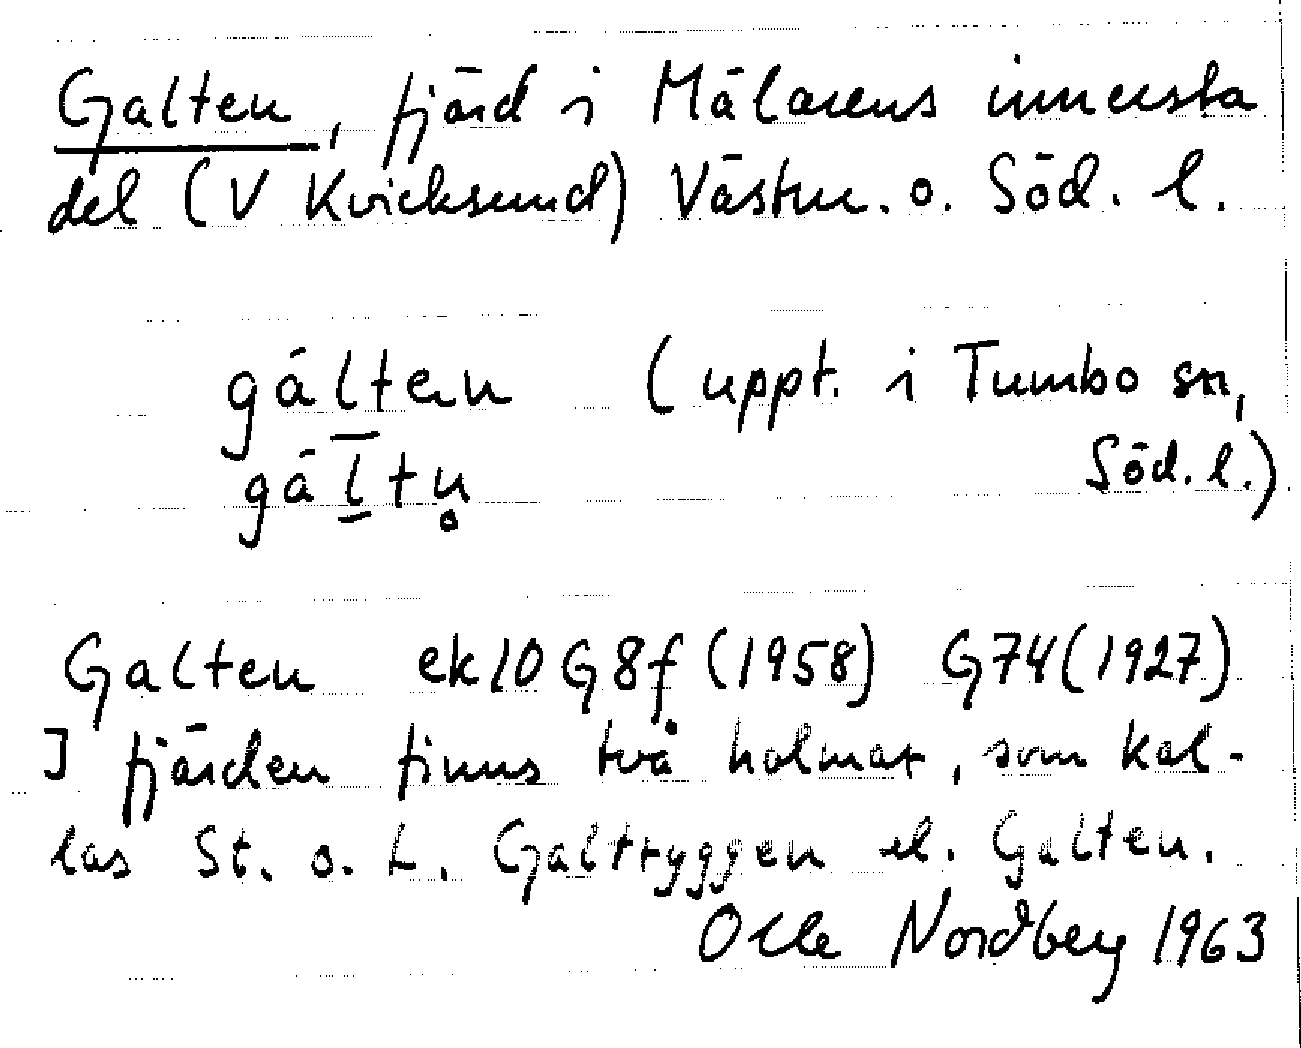 Galten, fjärd i Mälarens innersta
del (V Kvicksund) Västm. o. Söd. l.
gálten (uppt. i Tumbo sn,
gáltn̥ Söd. l.)
Galten ek 10 G 8 f (1958) G 74 (1927)
I fjärden finns två holmar, som kal-
las St. o. L. Galtryggen el. Galten.
Olle Nordberg 1963